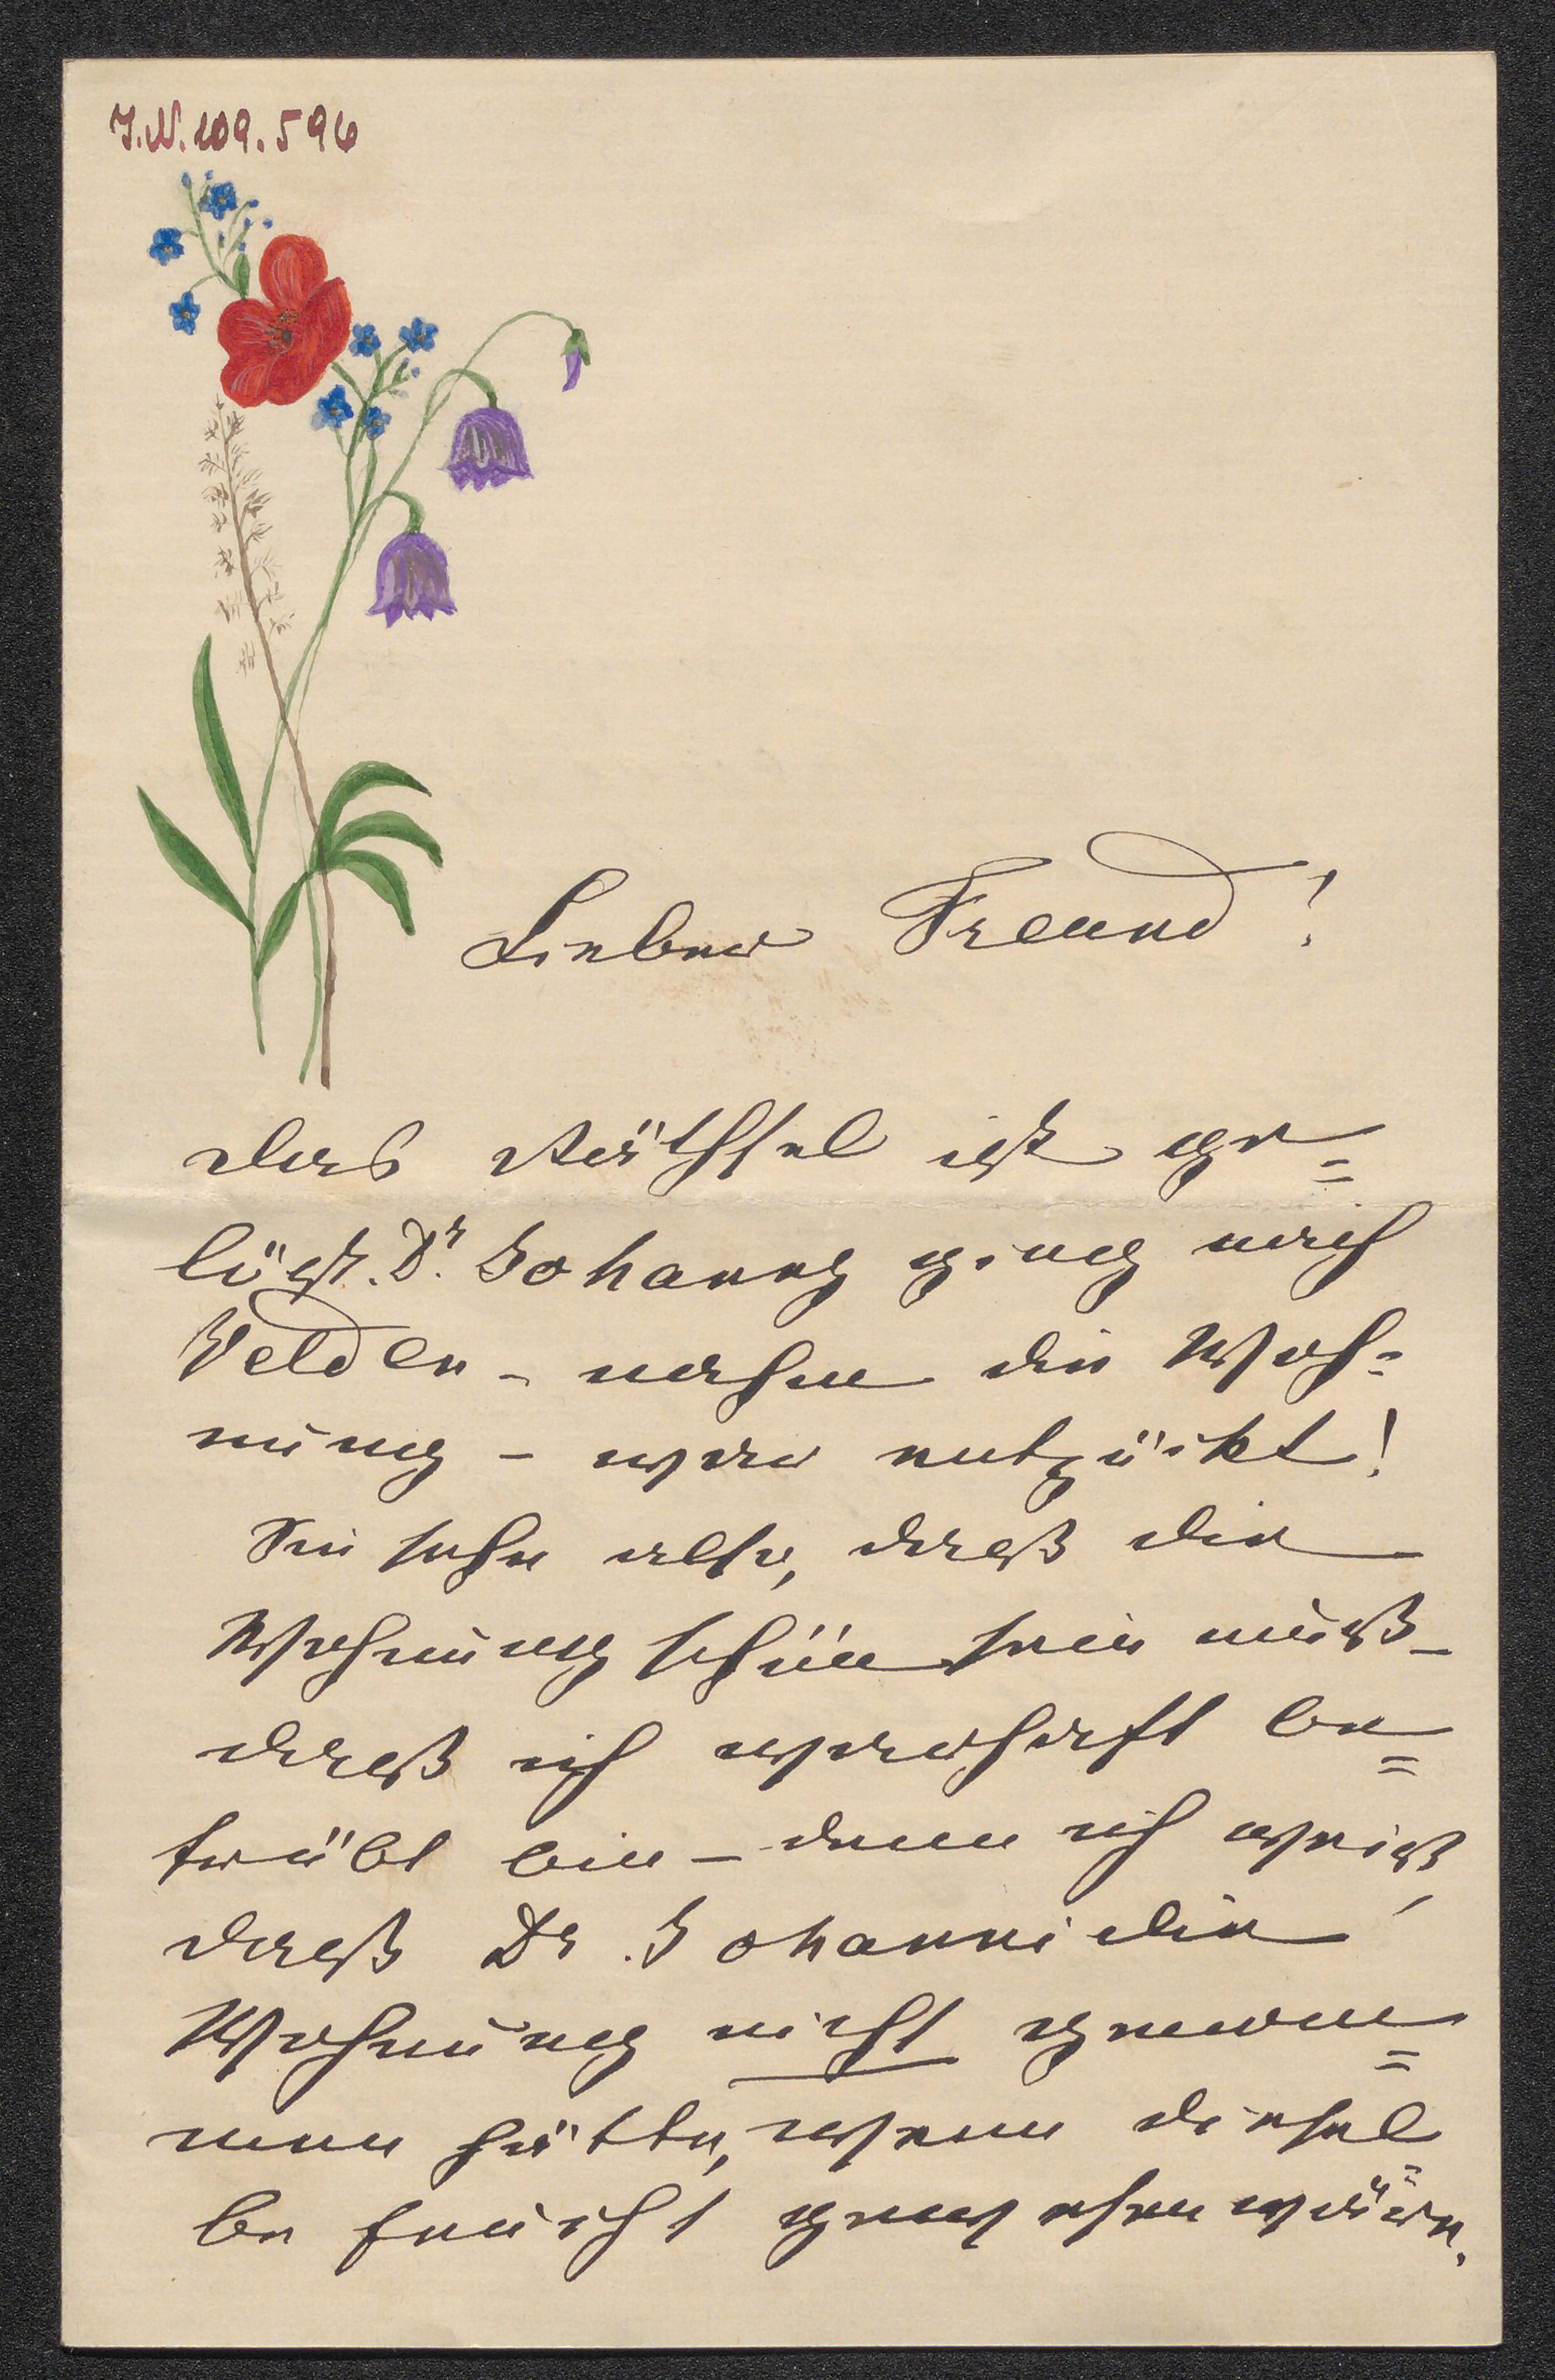 I.N. 109.596
Lieber Freund!
das Räthsel ist ge=
löst. Dr. Johanny ging nach
Velden – nahm die Woh=
nung – war entzückt!
Sie sehn also, daß die
Wohnung schön sein muß –
daß ich wahrhaft be=
trübt bin – denn ich weiß,
daß Dr. Johanni die
Wohnung nicht genom=
men hätte, wenn diesel
be feucht gewesen wäre.